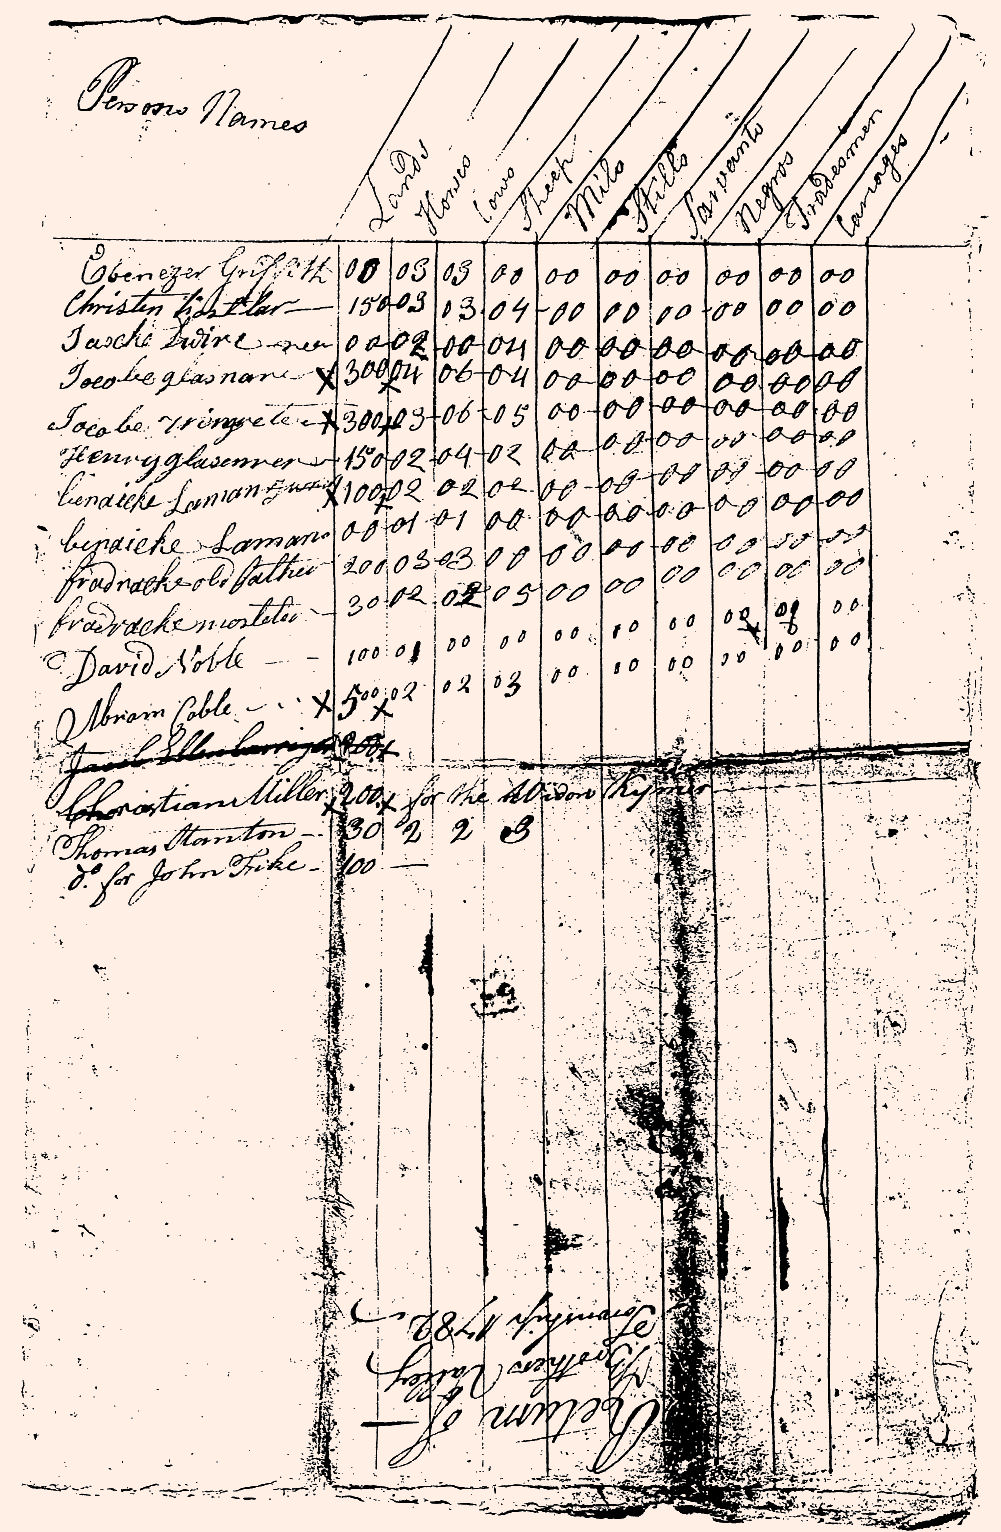 Persons Names Lands Horses Cows Sheep Mils Stills Sarvants Negros Tradesmen Cariages
Ebenezer Griffith 00 03 03 00 00 00 00 00 00 00
Christen 150 03 03 04 00 00 00 00 00 00
00 02 00 04 00 00 00 00 00 00
Jocobe glasnare X 300 X 04 06 04 00 00 00 00 00 00
Jocobe X 300 X 03 06 05 00 00 00 00 00 00
Henry glasenner 150 02 04 02 00 00 00 00 00 00
bendicke Laman X 100 X 02 02 02 00 00 00 00 00 00
bendicke Laman 00 01 01 00 00 00 00 00 00 00
fradracke old father 200 03 03 00 00 00 00 00 00 00
fradracke 30 02 02 05 00 00 00 00 00 00
David Noble 100 01 00 00 00 10 00 00 00
Abram Coble X 500 X 02 02 03 00 10 00 00 00 00
Christian Miller X 200 X for the Widow Kymer
Thomas Stanton 30 2 2 3
do. for John Frike 100
Return of
Brothers Valley
Township 1782